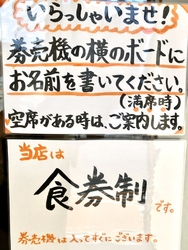 いらっしゃいませ!
券売機の横のボードに
お名前を書いてください。
(満席時)
空席がある時は、ご案内します。
当店は
食券制
です。
券売機は入ってすぐにございます。